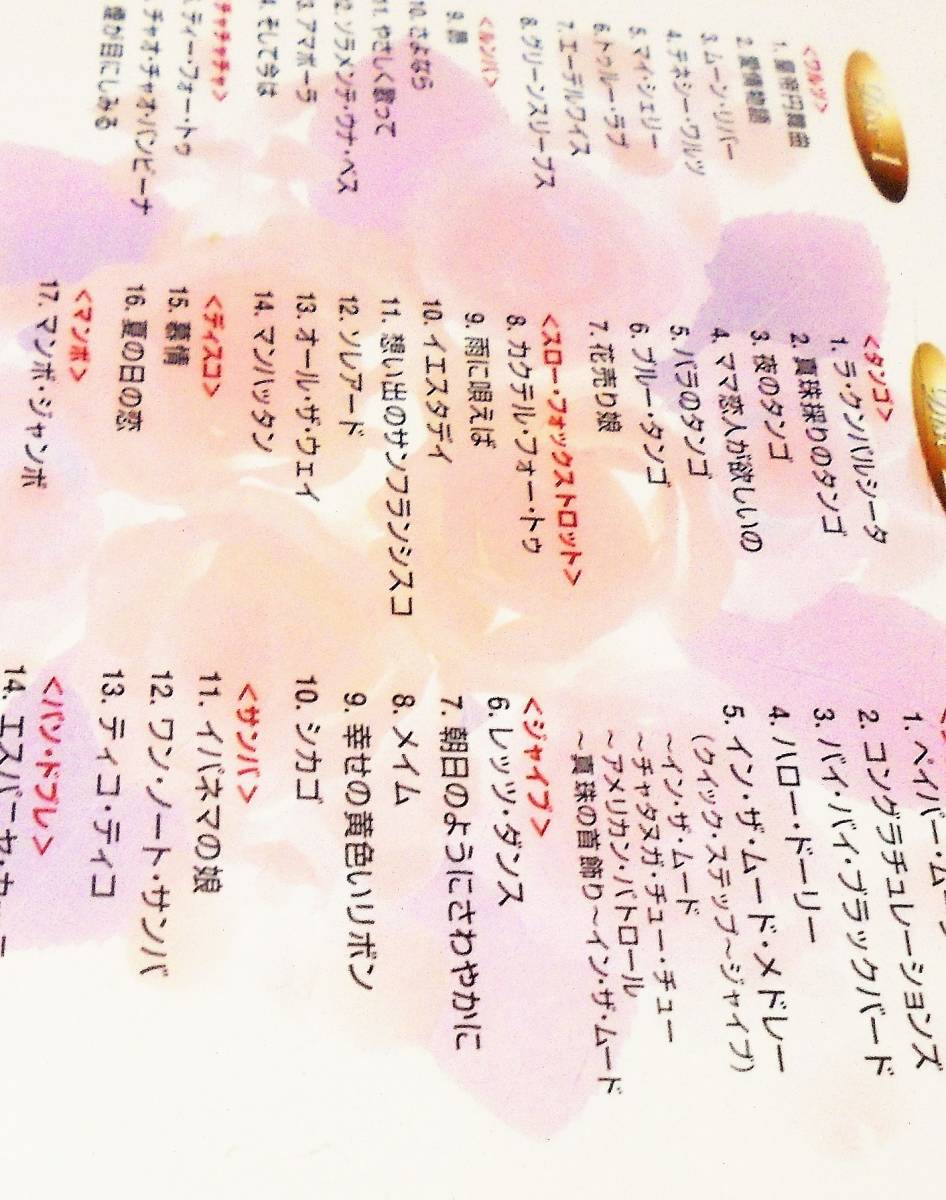 Disc-1
<ワルツ>
1. 星空円舞曲
2. 愛情物語
3. ムーン・リバー
4. テネシー・ワルツ
5. マイ・シェリー
6. トゥルー・ラブ
7. エーデルワイス
8. グリーンスリーブス
<ルンバ>
10. さよなら
11. やさしく歌って
12. ソラメンテ・ウナ・ベス
3. アマポーラ
4. そして今は
チャチャチャ>
ティー・フォー・トゥ
チャオ・チャオ・バンビーナ
煙が目にしみる
<タンゴ>
1. ラ・クンパルシータ
2. 真珠採りのタンゴ
3. 夜のタンゴ
4. ママ恋人が欲しいの
5. バラのタンゴ
6. ブルー・タンゴ
7. 花売り娘
<スロー・フォックストロット>
8. カクテル・フォー・トウ
9. 雨に唄えば
10. イエスタディ
11. 想い出のサンフランシスコ
12. ソレアード
13. オール・ザ・ウェイ
14. マンハッタン
<ディスコ>
15. 慕情
16. 夏の日の恋
<マンボ>
17. マンボ・ジャンボ
1. ペイパー・ム
2. コングラチュレーションズ
3. バイ・バイ・ブラックバード
4. ハロー・ドーリー
5. イン・ザ・ムード・メドレー
(クイック・ステップ~ジャイブ)
~イン・ザ・ムード
~チャタヌガ・チュー・チュー
~アメリカン・パトロール
~真珠の首飾り~イン・ザ・ムード
<ジャイブ>
6. レッツ・ダンス
7. 朝日のようにさわやかに
8. メイム
9. 幸せの黄色いリボン
10. シカゴ
<サンバ>
11. イパネマの娘
12. ワン・ノート・サンバ
13. ティコ・ティコ
<パソ・ドブレ>
14. エスパーニャ・カーニ